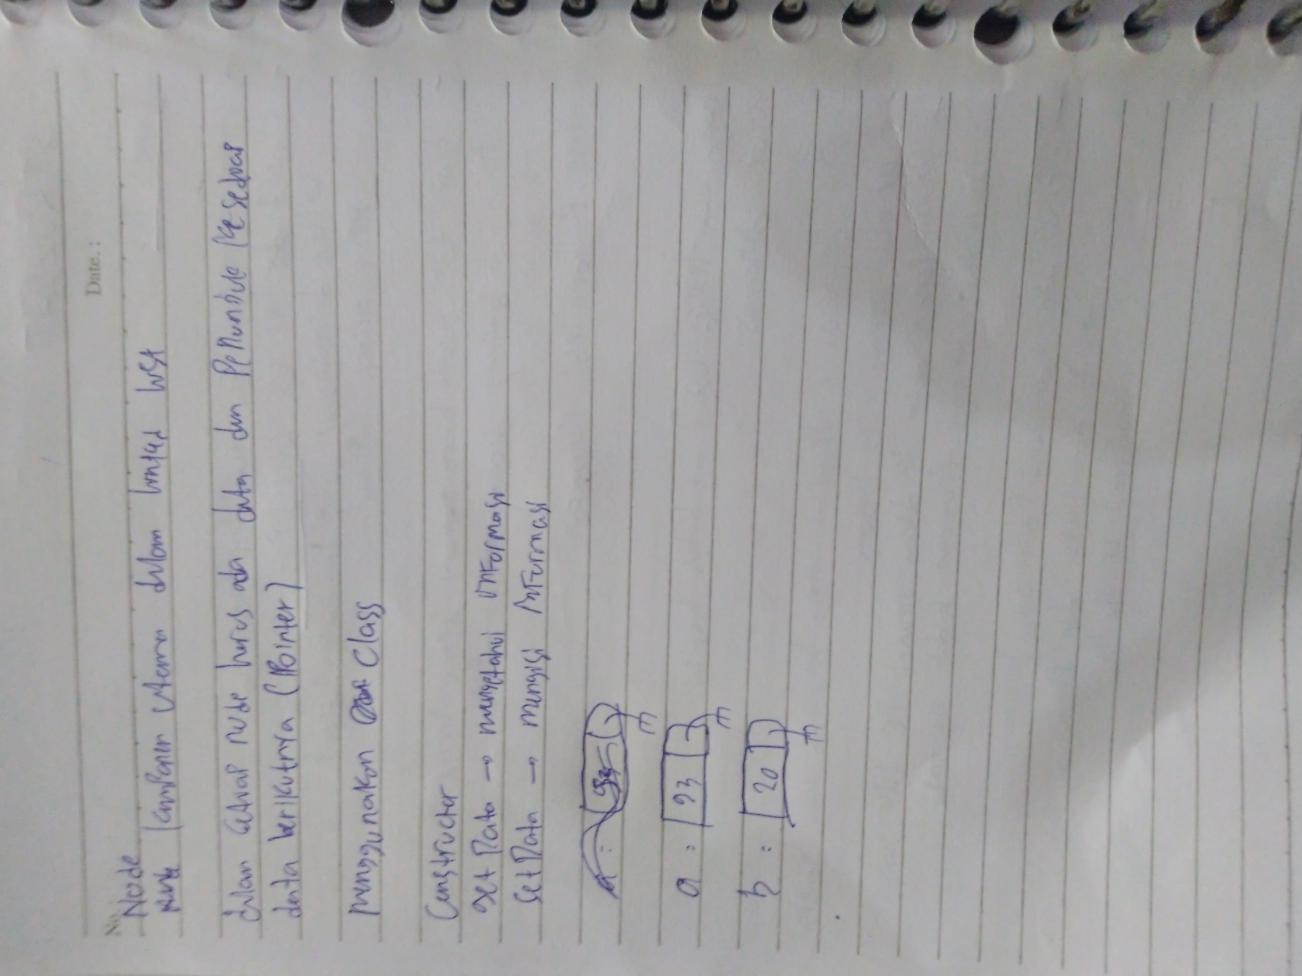 No.
Date. :
Node
Node komponen utama dalam linked list
dalam setiap node harus ada data dan Penunjuk ke sebuah
data berikutnya (Pointer)
menggunakan Class
Constructor
get Data → mengetahui informasi
Set Data → mengisi informasi
a : 93
b : 20